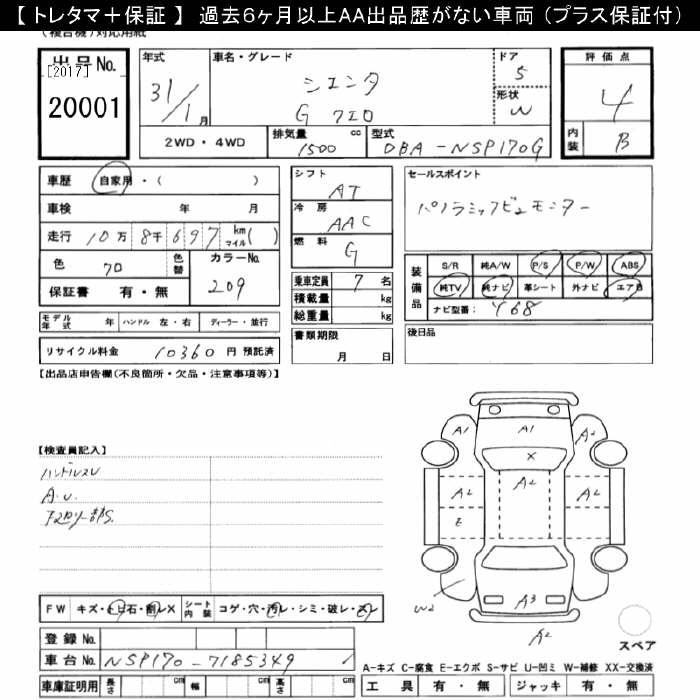 【 トレタマ＋保証 】 過去6ヶ月以上AA出品歴がない車両 (プラス保証付)
(複合機)対応用紙
出品No.
[2017]
20001
年式
31/1月
車名・グレード
シエンタ
G
ドア
5
形状
W
評価点
4
内装
B
2WD・4WD
排気量
cc
1500
型式
DBA-NSP170G
車歴
自家用・( )
車検 年 月
走行 10万 8千 697 km マイル( )
色
色替
カラーNo.
209
保証書 有・無
モデル年式 年
ハンドル 左・右
ディーラー・並行
リサイクル料金 10360 円 預託済
シフト
AT
冷房
AAC
燃料
G
乗車定員 7 名
積載量 kg
総重量 kg
書類期限
月 日
セールスポイント
パノラミックビューモニター
装備品
S/R
純A/W
P/S
P/W
ABS
純TV
純ナビ
革シート
外ナビ
エアB
ナビ型番:
Y68
後日品
【出品店申告欄(不良箇所・欠品・注意事項等)】
【検査員記入】
ハンドルスレ
A.U.
FW
キズ・トビ石・割レX
シート内装
コゲ・穴・汚レ・シミ・破レ・スレ
登録No.
車台No.
NSP170-7185349
車庫証明用
長さ cm
幅 cm
高さ cm
A1
A1
A2
X
A2
A2
A2
E
W2
A3
A2
スペア
A-キズ C-腐食 E-エクボ S-サビ U-凹ミ W-補修 XX-交換済
工具 有・無
ジャッキ 有・無